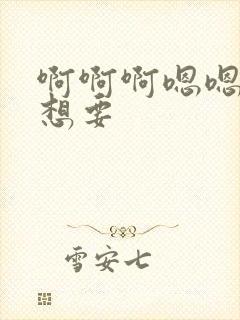 啊啊啊嗯嗯
想要
雪安七